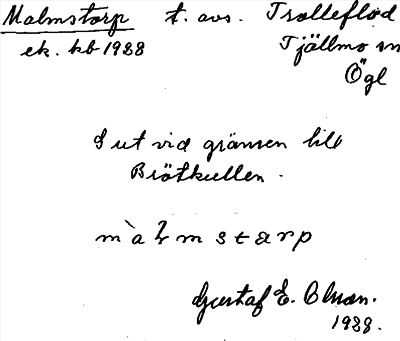 Malmstorp t. avs. Trolleflod
ek. kb 1928 Tjällmo sn
Ögl
I ut vid gränsen till
Brötkullen.
m`almstarp
Gustaf E. Olson.
1928.